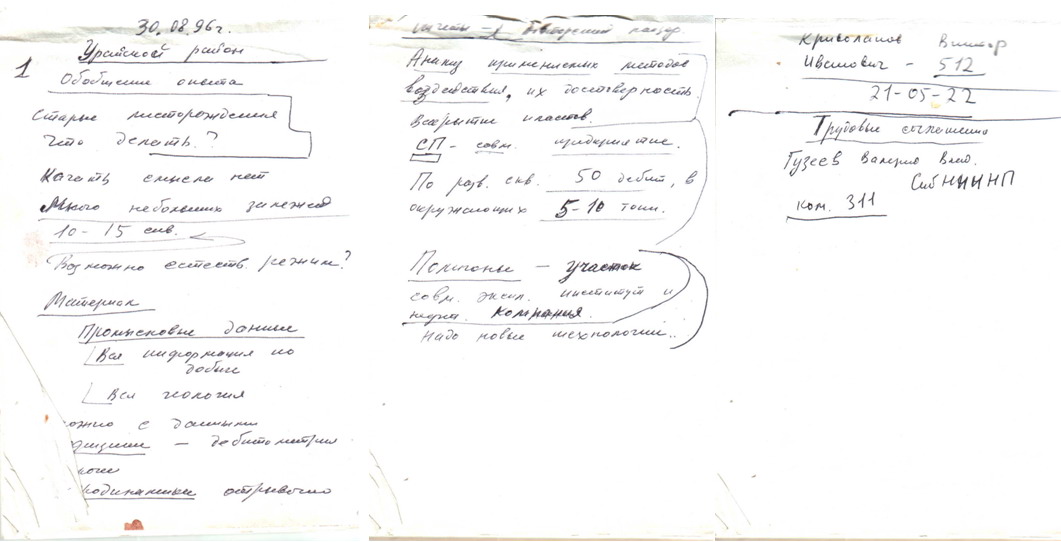 30.08.96г.
Урайский район
1
Обобщение опыта
Старые месторождения
Что делать?
Качать смысла нет
Много небольших залежей
10-15 скв.
Возможно естеств. режим?
Материал
Промысловые данные
Вся информация по
добыче
Вся геология
ожно с данными
— дебитометрия
отрывочно
Анализ применяемых методов
воздействия, их достоверность.
Вскрытие пластов.
СП - совм. предприятие.
По разв. скв. 50 дебит, в
окружающих 5-10 тонн.
Полигоны - участок
совм. экспл. институт и
компания.
Надо новые технологии..
Криволапов Виктор
Иванович - 512
21-05-22
Трудовые соглашения
Гузеев Валерий Влад.
СибНИИНП
ком. 311